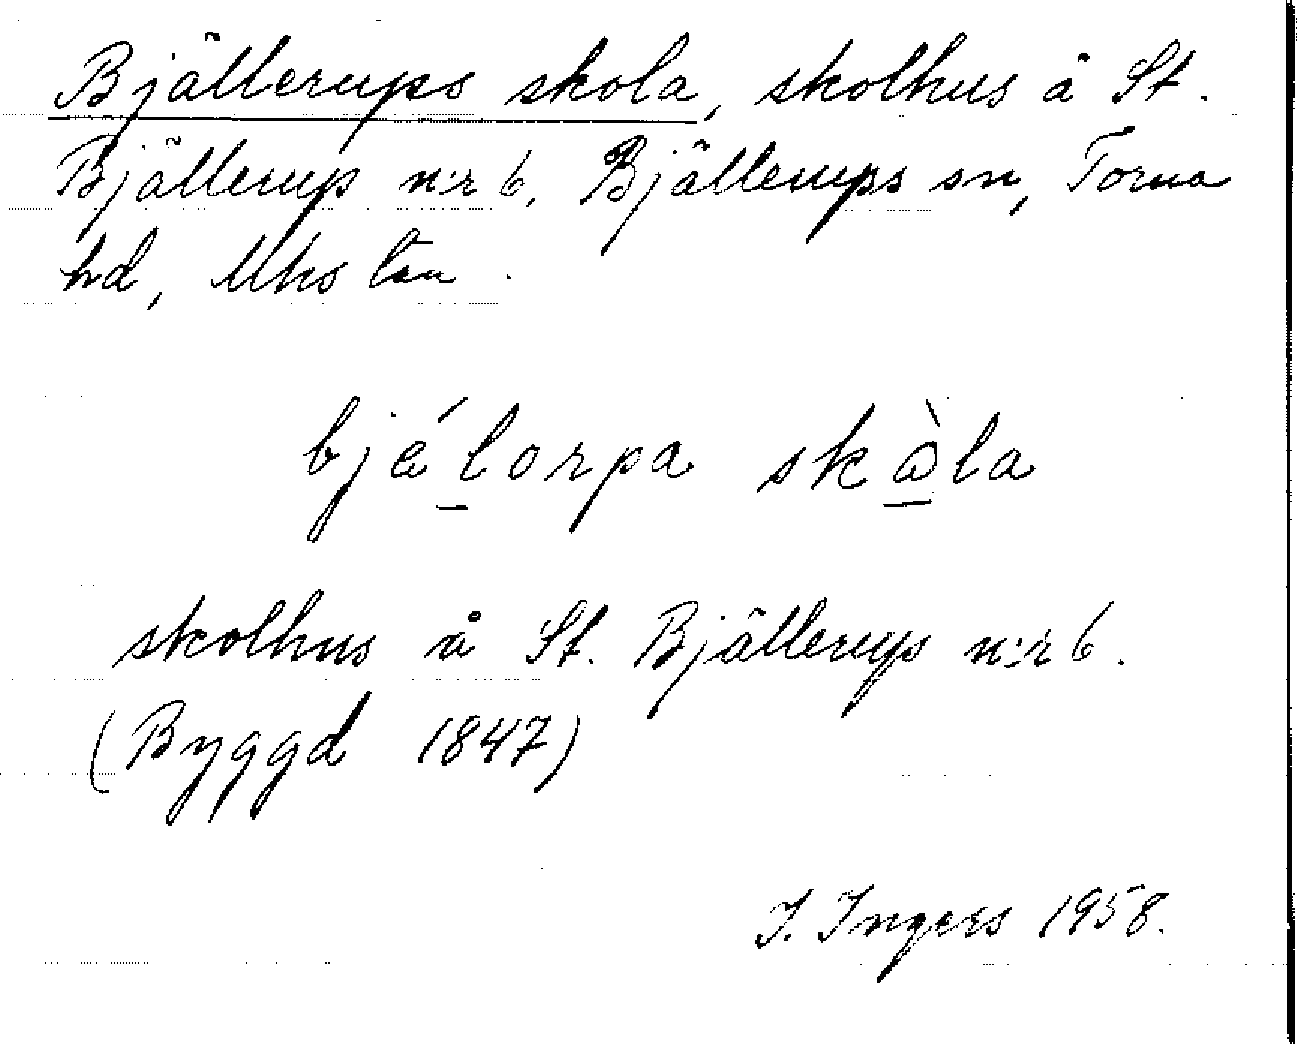 Bjällerups skola, skolhus å St.
Bjällerup n:r 6, Bjällerups sn, Torna
hd, Mhs län.
bjǽlorpa skà̱la
skolhus å St. Bjällerup n:r 6.
(Byggd 1847)
I. Ingers 1958.